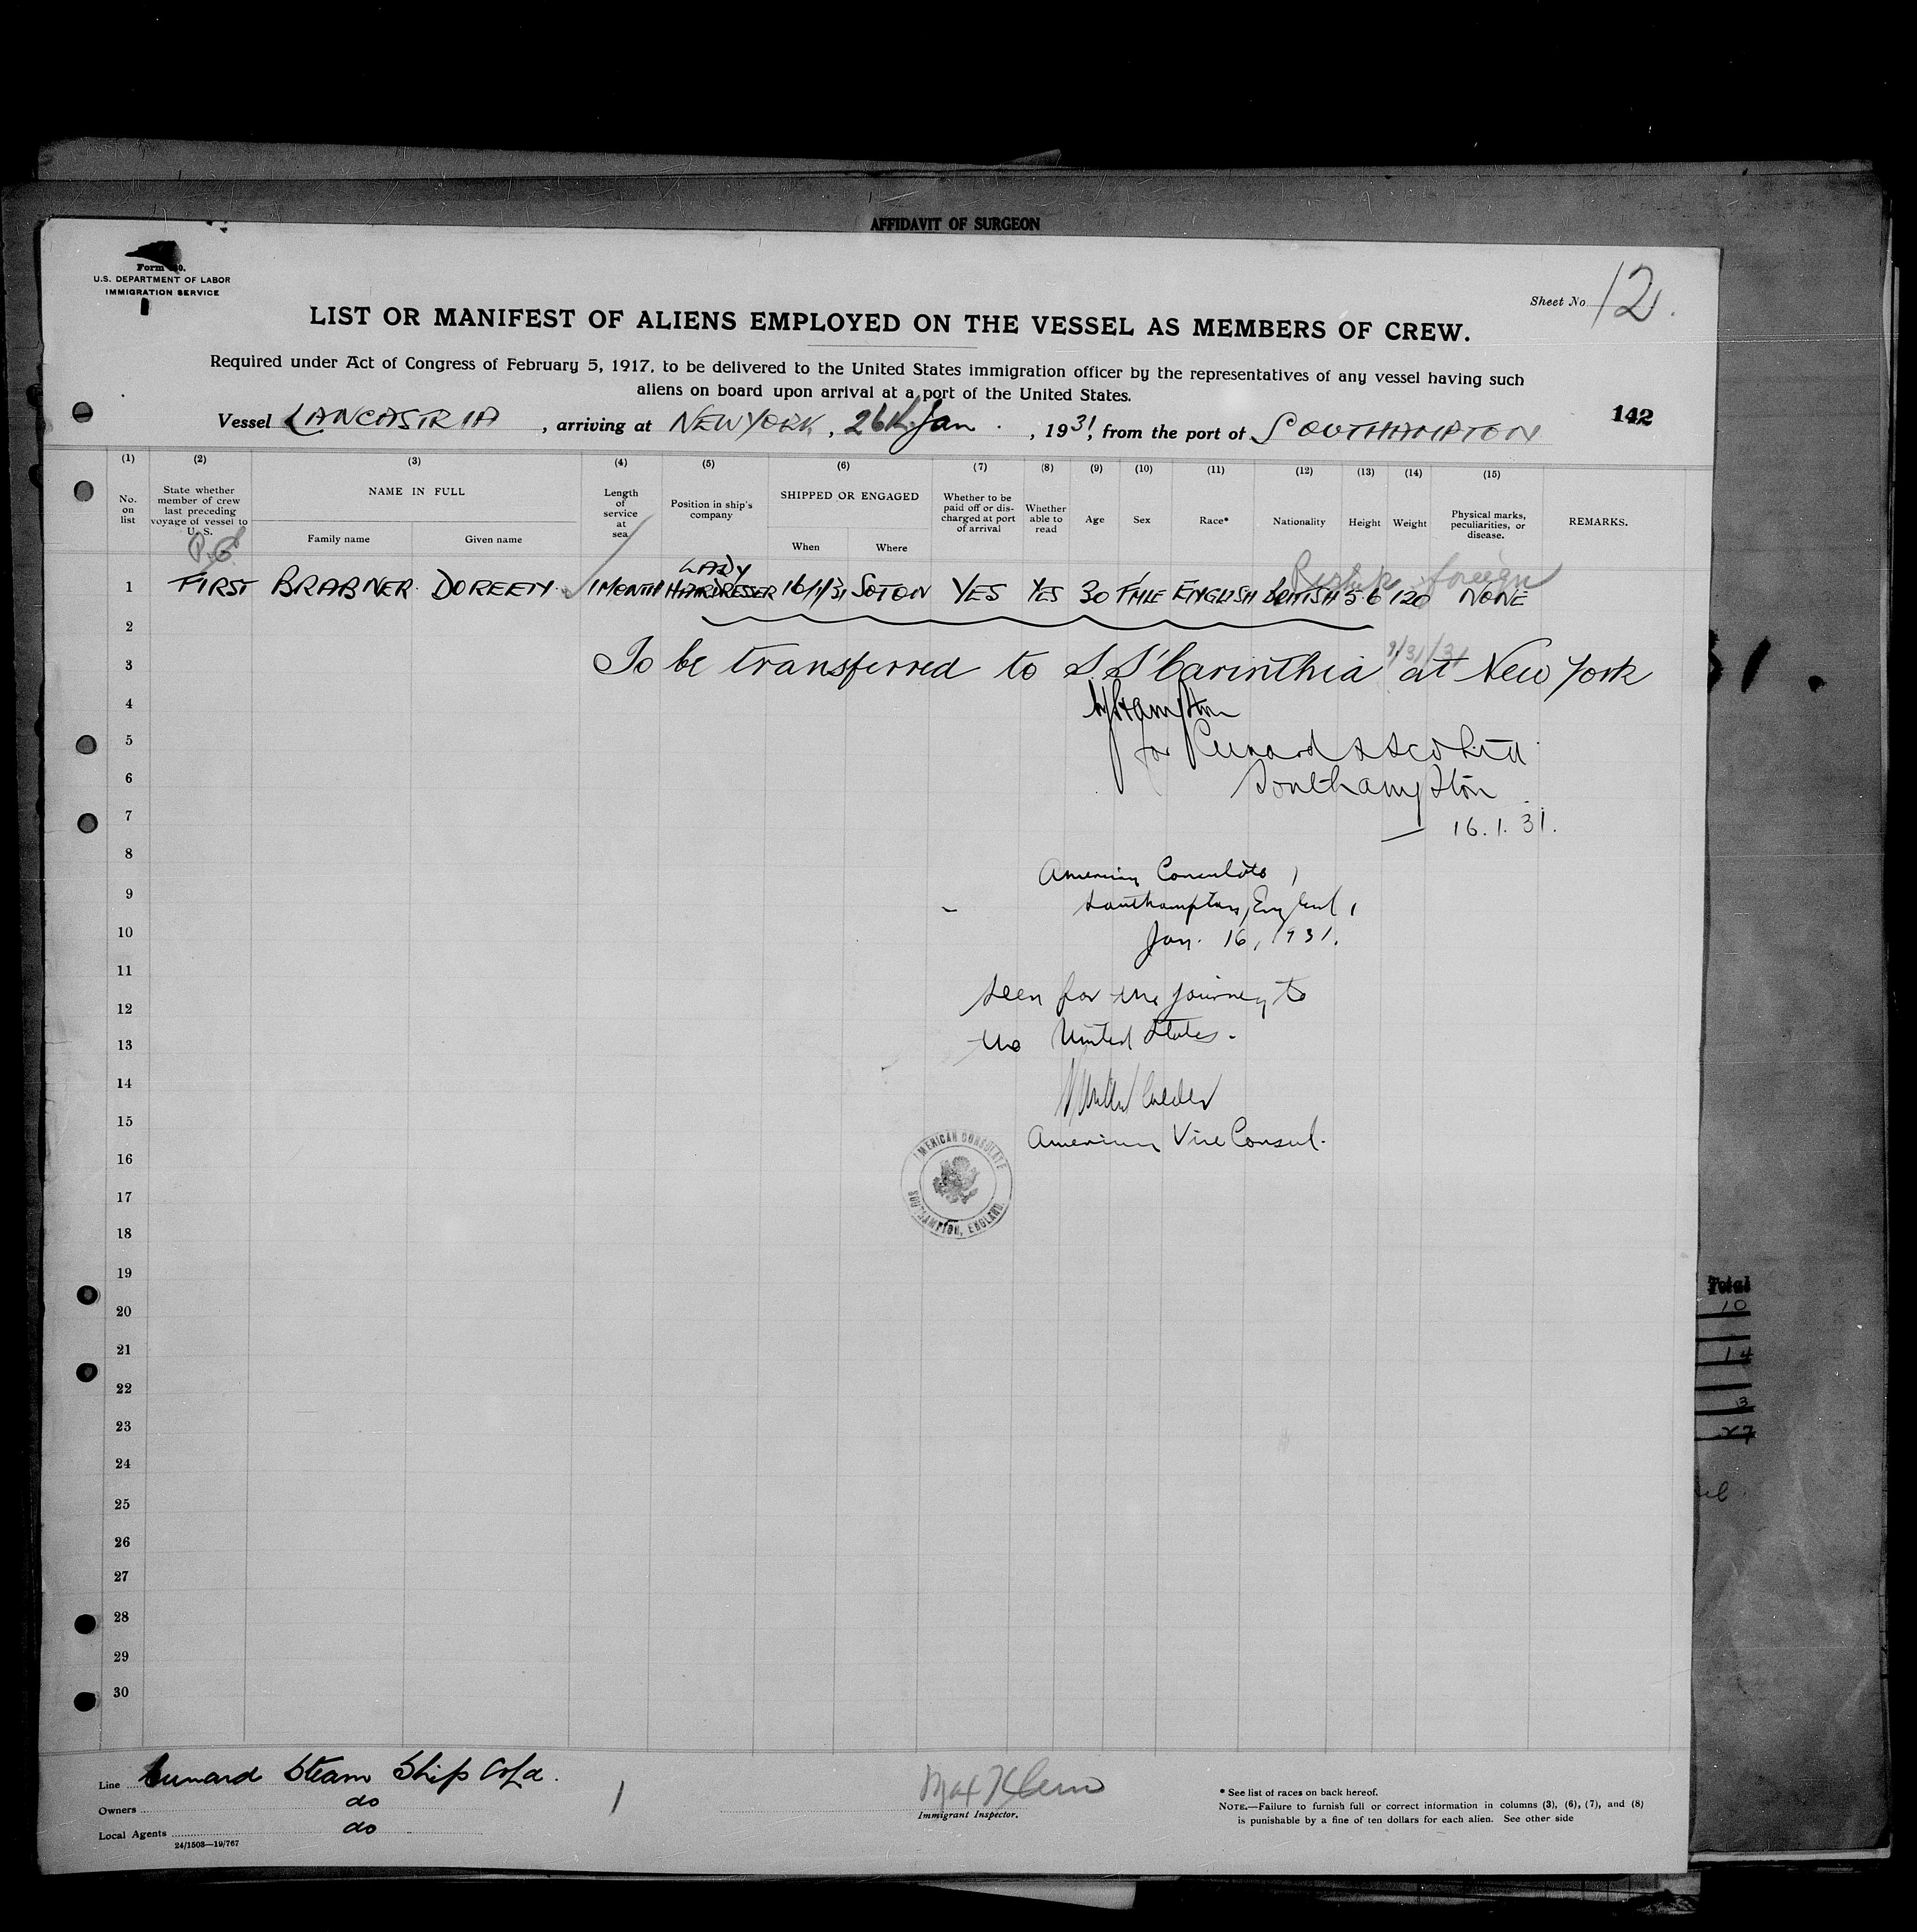 AFFIDAVIT OF SURGEON
Form
U.S. DEPARTMENT OF LABOR
IMMIGRATION SERVICE
Sheet No. 12.
LIST OR MANIFEST OF ALIENS EMPLOYED ON THE VESSEL AS MEMBERS OF CREW.
Required under Act of Congress of February 5, 1917, to be delivered to the United States immigration officer by the representatives of any vessel having such
aliens on board upon arrival at a port of the United States.
142
Vessel LANCASTRIA, arriving at NEW YORK, 26th Jan., 1931, from the port of SOUTHAMPTON
(1) (2) (3) (4) (5) (6) (7) (8) (9) (10) (11) (12) (13) (14) (15)
No. on list
State whether member of crew last preceding voyage of vessel to U. S.
NAME IN FULL
Family name
Given name
Length of service at sea
Position in ship's company
SHIPPED OR ENGAGED
When
Where
Whether to be paid off or discharged at port of arrival
Whether able to read
Age
Sex
Race*
Nationality
Height
Weight
Physical marks, peculiarities, or disease.
REMARKS.
Reship foreign
LADY
1 FIRST BRABNER DOREEN 1 MONTH HAIRDRESSER 16/1/31 SOTON YES YES 30 FMLE ENGLISH BRITISH 5.6 120 NONE
2
3 To be transferred to S.S "Carinthia" at New York
4
5 for Cunard SSCo Ltd
6 Southampton
7 16.1.31.
8
American Consulate,
9 Southampton, England,
10 Jan. 16, 1931.
11
seen for the journey to
12
13 the United States.
14
15 American Vice Consul.
AMERICAN CONSULATE
SOUTHAMPTON, ENGLAND.
16
17
18
19
20
21
22
23
24
25
26
27
28
29
30
Total
10
14
3
27
Line Cunard Steam Ship Co Ld.
Owners do
Local Agents do
24/1503—19/767
1
Max Klein
Immigrant Inspector.
* See list of races on back hereof.
NOTE.—Failure to furnish full or correct information in columns (3), (6), (7), and (8)
is punishable by a fine of ten dollars for each alien. See other side